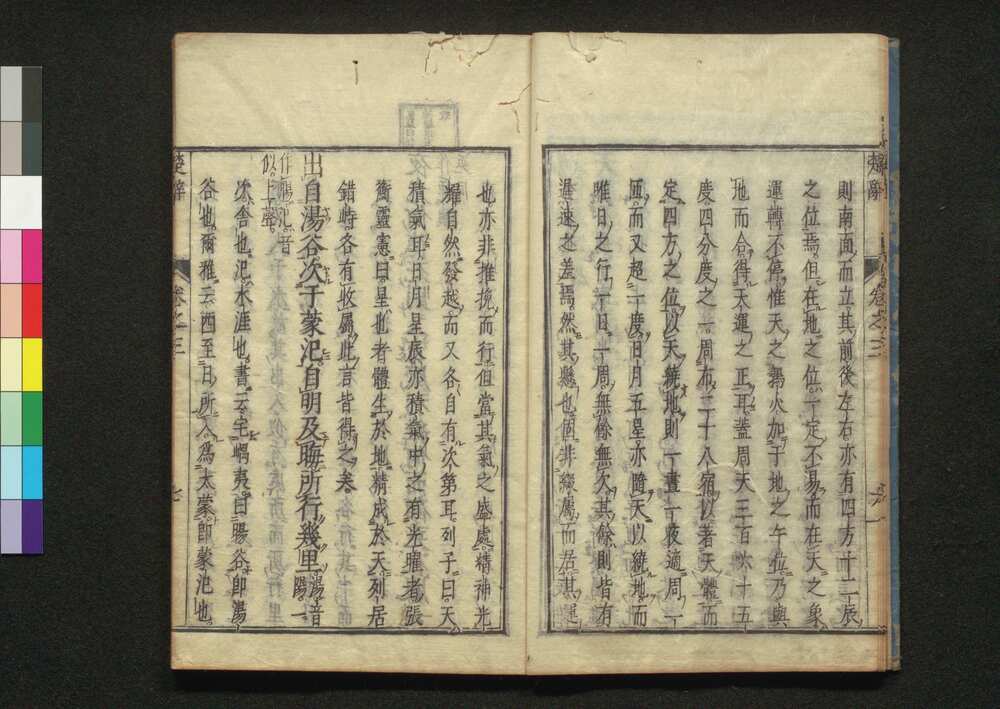 則南面而立其前後左右亦有四方十二辰
之位焉但在地之位一定不易而在天之象
運轉不停惟天之鶉火加于地之午位乃與
地而合得天運之正耳蓋周天三百六十五
度四分度之一周布二十八宿以著天體而
定四方之位以天繞地則一晝一夜適周一
匝而又超一度日月五星亦隨天以繞地而
唯日之行一日一周無餘無欠其餘則皆有
遲速之差焉然其懸也固非綴屬而居其運
也亦非推挽而行但當其氣之盛處精神光
耀自然發越而又各自有次第耳列子曰天
積氣耳日月星辰亦積氣中之有光曜者張
衡靈憲曰星也者體生於地精成於天列居
錯峙各有攸屬此言皆得之矣
出自湯谷次于蒙汜自明及晦所行幾里湯音陽一
作暘汜音
似上聲
次舍也汜水涯也書云宅嵎夷曰暘谷卽湯
谷也爾雅云西至日所入爲太蒙卽蒙汜也
楚辭 卷之三 七